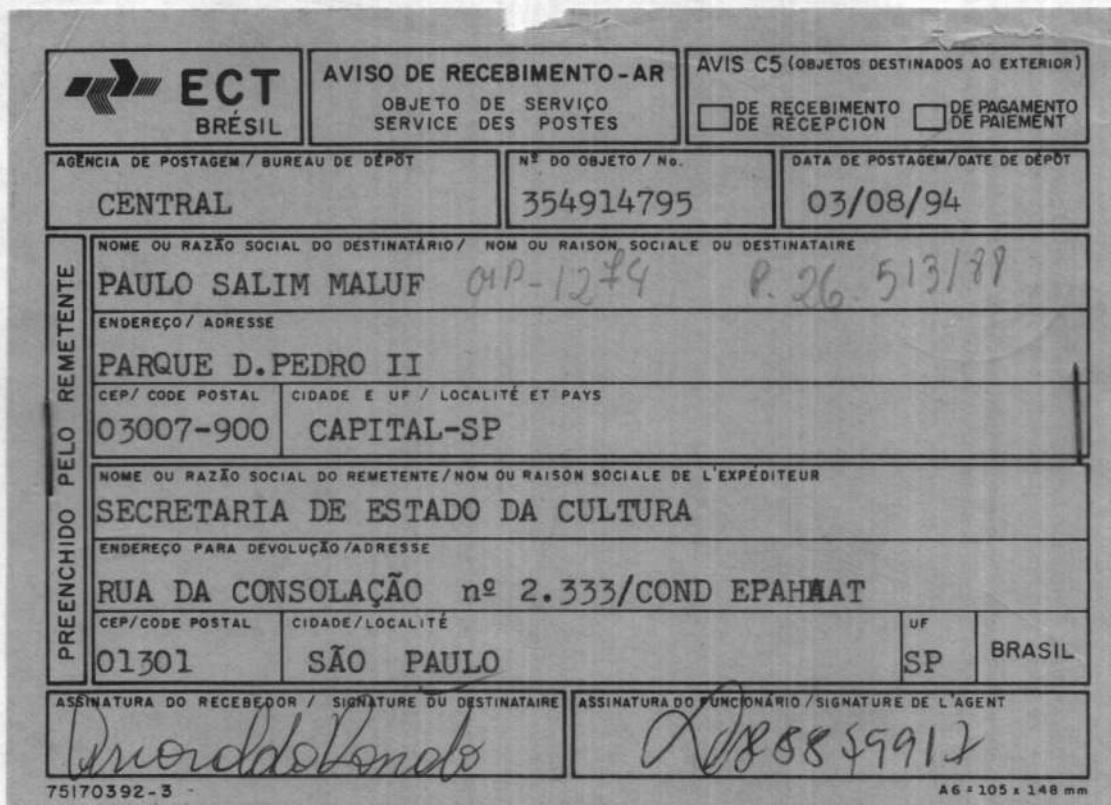 ECT
BRÉSIL
AVISO DE RECEBIMENTO-AR
OBJETO DE SERVIÇO
SERVICE DES POSTES
AVIS C5 (OBJETOS DESTINADOS AO EXTERIOR)
DE RECEBIMENTO
DE RÉCEPCION
DE PAGAMENTO
DE PAIEMENT
AGÊNCIA DE POSTAGEM / BUREAU DE DÉPÔT
CENTRAL
Nº DO OBJETO / No.
354914795
DATA DE POSTAGEM/DATE DE DÉPÔT
03/08/94
PREENCHIDO PELO REMETENTE
NOME OU RAZÃO SOCIAL DO DESTINATÁRIO / NOM OU RAISON SOCIALE DU DESTINATAIRE
PAULO SALIM MALUF P. 26.513/88
ENDEREÇO / ADRESSE
PARQUE D.PEDRO II
CEP/ CODE POSTAL
03007-900
CIDADE E UF / LOCALITÉ ET PAYS
CAPITAL-SP
NOME OU RAZÃO SOCIAL DO REMETENTE/NOM OU RAISON SOCIALE DE L'EXPÉDITEUR
SECRETARIA DE ESTADO DA CULTURA
ENDEREÇO PARA DEVOLUÇÃO/ADRESSE
RUA DA CONSOLAÇÃO nº 2.333/COND EPAHAAT
CEP/CODE POSTAL
01301
CIDADE/LOCALITÉ
SÃO PAULO
UF
SP
BRASIL
ASSINATURA DO RECEBEDOR / SIGNATURE DU DESTINATAIRE
ASSINATURA DO FUNCIONÁRIO/SIGNATURE DE L'AGENT
75170392-3
A6 = 105 x 148 mm